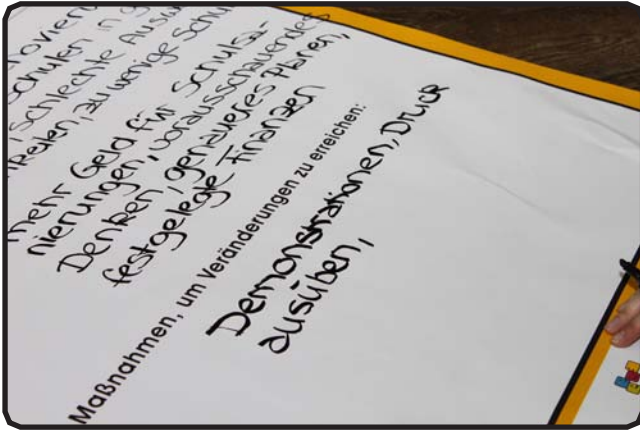 Schulen in
schlechte
zu wenige
mehr Geld für Schulsa-
nierungen, vorausschauendes
Denken, genaueres Planen,
festgelegte Finanzen
Maßnahmen, um Veränderungen zu erreichen:
Demonstrationen, Druck
ausüben,